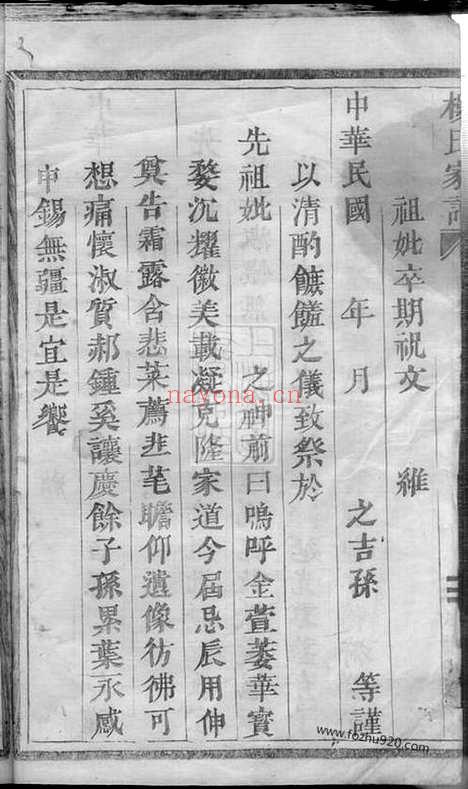 祖妣卒期祝文 維
中華民國 年 月 之吉孫 等謹
以清酌饙饈之儀致祭於
先祖妣 之神前曰嗚呼金萱萎華寳
婺沉耀徽美載凝克隆家道今屆忌辰用伸
奠告霜露含悲菜薦韭芼瞻仰遺像彷彿可
想痛懷淑質郝鍾奚讓慶餘子孫累葉永感
申錫無疆是宜是饗
nayona.cn
www.fozhu920.com